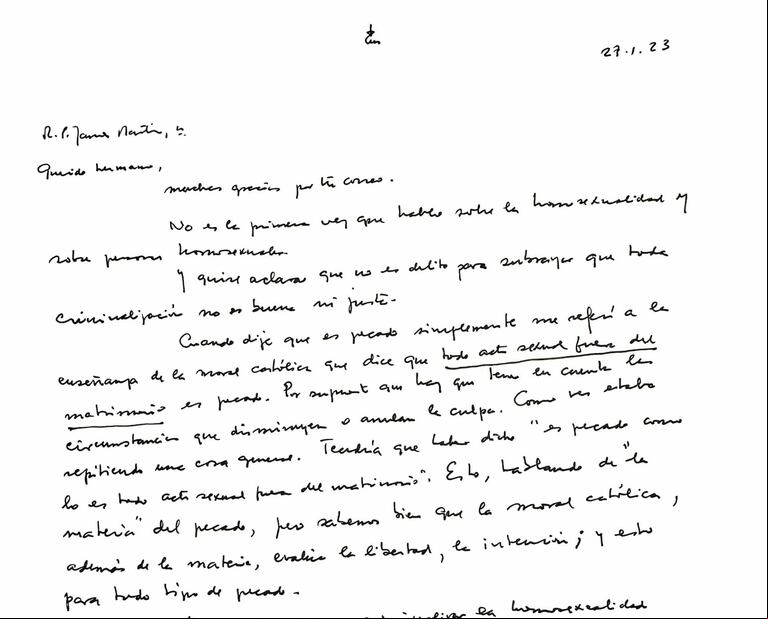 27.1.23
R.P. James Martin, sj.
Querido hermano,
muchas gracias por tu correo.
No es la primera vez que hablo sobre la homosexualidad y
sobre personas homosexuales.
Y quise aclarar que no es delito para subrayar que toda
criminalización no es buena ni justa.
Cuando dije que es pecado simplemente me referí a la
enseñanza de la moral católica que dice que todo acto sexual fuera del
matrimonio es pecado. Por supuesto que hay que tener en cuenta las
circunstancias que disminuyen o anulan la culpa. Como ves estaba
repitiendo una cosa general. Tendría que haber dicho "es pecado como
lo es todo acto sexual fuera del matrimonio". Esto, hablando de "la
materia" del pecado, pero sabemos bien que la moral católica,
además de la materia, evalúa la libertad, la intención; y esto
para todo tipo de pecado.
la homosexualidad